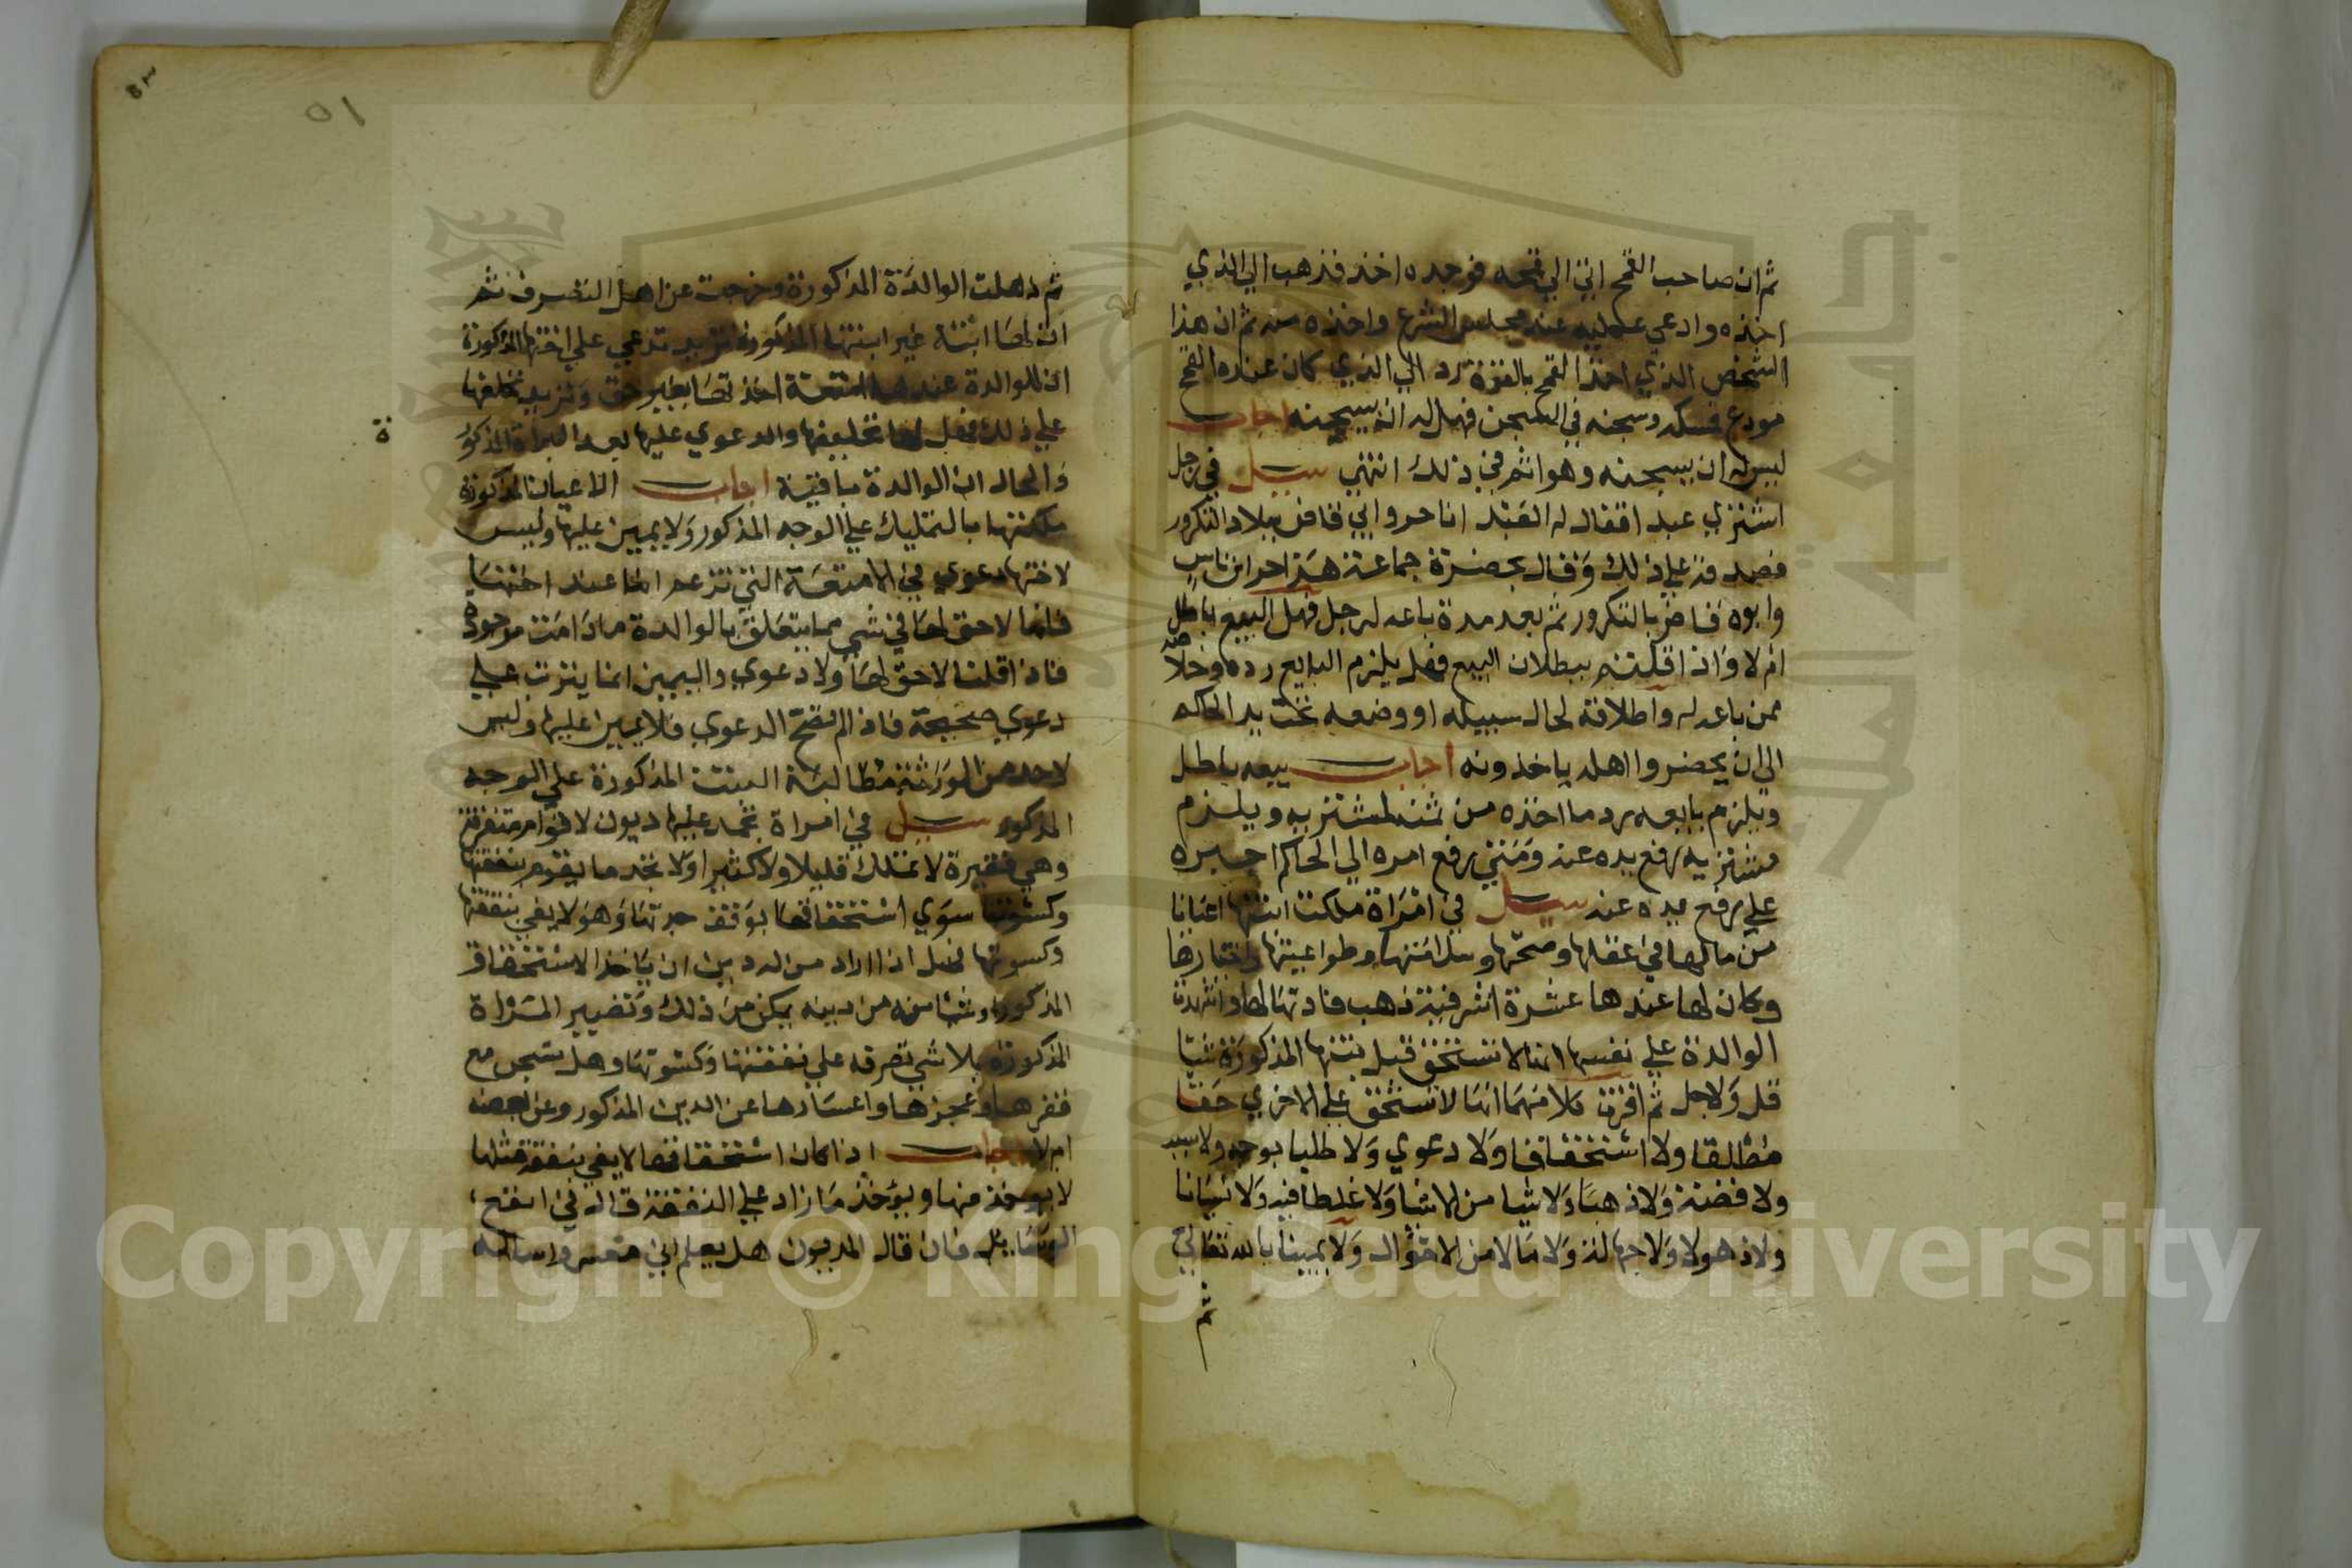 ثم ان صاحب القمح اتي الي قمحه فوجده اخذ فذهب الي الذي
اخذه وادعي عليه عند مجلس الشرع واخذه منه ثم ان هذا
الشخص الذي اخذ القمح بالقزة رد الي الذي كان عنده القمح
مودع فمسكه وسجنه في السجن فهل له ان يسجنه اجاب
ليس له ان يسجنه وهو اثم في ذلك انتهي سيل في رجل
اشتري عبد افقال له العبد انا حر وابي قاض ببلاد التكرور
فصدقه علي ذلك وقال بحضرة جماعة هذا حر ابن ناس
وابوه قاض بالتكرور ثم بعد مدة باعه لرجل فهل البيع باطل
ام لا واذا قلتم ببطلان البيع فهل يلزم البايع رده وخلاصه
ممن باعه له واطلاقه لحال سبيله او وضعه تحت يد الحاكم
الي ان يحضروا اهله ياخذونه اجاب بيعه باطل
ويلزم بايعه رد ما اخذه من ثمنه لمشتريه ويلزم
مشتريه رفع يده عنه ومتي رفع امره الي الحاكم اجبره
علي رفع يده عنه سيل في امراة ملكت ابنتها اعيانا
من مالها في عقلها وصحتها وسلامتها وطواعيتها واختيارها
وكان لها عندها عشرة اشرفية ذهب فادتها لها واشهدت
الوالدة علي نفسها انها لا تستحق قبل بنتها المذكورة شيا
قل ولا جل ثم اقرت كلا منهما انها لا تستحق علي الاخري حقا
مطالقا ولا استحقاقا ولا دعوي ولا طلبا بوجه ولا سبب
ولا فضة ولا ذهبا ولا شيا من الاشيا ولا غلطا فيه ولا نسيانا
ولا ذهولا ولا جهالة ولا مالا من الاموال ولا يمينا بالله تعالي
ثم
٥١
ثم ذهلت الوالدة المذكورة وخرجت عن اهل التصرف ثم
ان لها ابنة غير ابنتها المذكورة تريد تدعي علي اختها المذكورة
ان للوالدة عندها امتعة اخذتها بغير حق وتريد تحلفها
علي ذلك فهل لها تحليفها والدعوي عليها بعد البراة المذكور
ة
والحال ان الوالدة باقية اجاب الاعيان المذكورة
ملكتها بالتمليك علي الوجه المذكور ولا يمين عليها وليس
لاختها دعوي في الامتعة التي تزعم انها عند اختها
فانها لا حق لها في شي مما يتعلق بالوالدة ما دامت موجودة
فاذا قلنا لا حق لها ولا دعوي واليمين انما يترتب علي
دعوي صحيحة فاذا لم تصح الدعوي فلا يمين عليها وليس
لاحد من الورثة مطالبة البنت المذكورة علي الوجه
المذكور سيل في امراة تجمد عليها ديون لاقوام متفرقة
وهي فقيرة لا تمتلك قليلا ولا كثيرا ولا تجد ما يقوم بنفقتها
وكسوتها سوي استحقاقها بوقف جدتها وهو لا يفي بنفقتها
وكسوتها فهل اذا اراد من له دين ان ياخذ الاستحقاق
المذكور او شيا منه من دينه يمكن من ذلك وتصير المراة
المذكورة بلا شي تصرفه علي نفقتها وكسوتها وهل تسجن مع
فقرها وعجزها واعسارها عن الدين المذكور وعن بعضه
ام لا اجاب اذا كان استحقاقها لا يفي بنفقة مثلها
لا يوخذ منها ويوخذ ما زاد علي النفقة قال في انفع
الوسايل فان قال المديون هل يعلم اني معسر واساله